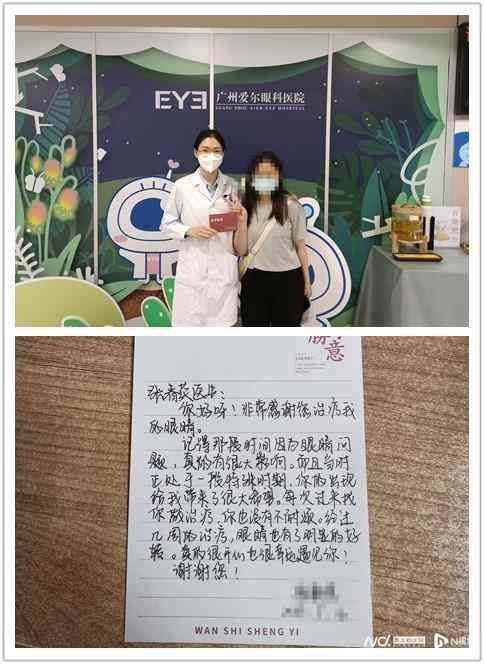 EYE 广州爱尔眼科医院
GUANG ZHOU AIER EYE HOSPITAL
意
医生：
你好呀！非常感谢您治疗我
的眼睛。
记得那段时间因为眼睛问
题，真的有很大影响。而且当时
正处于一段特殊时期，你的出现
给我带来了很大希望。每次过来找
你做治疗，你也没有不耐烦。经过
几周的治疗，眼睛也有了明显的好
转。真的很开心也很幸运遇见你！
谢谢您！
WAN SHI SHENG YI